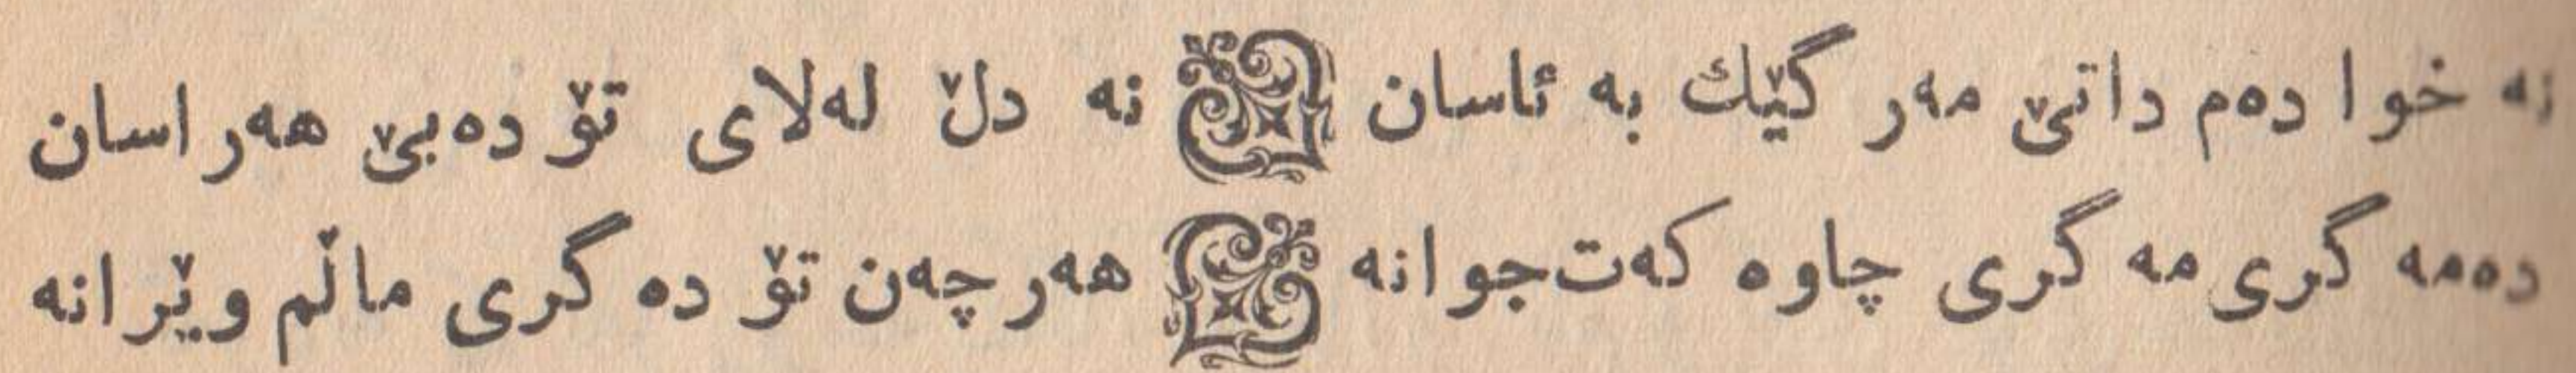 نه خوا دەم داتێ مەر گێك به ئاسان نه دڵ لەلای تۆ دەبێ هەراسان
دەمه گری مه گری چاوە کەت جوانه هەرچەن تۆ دە گری ماڵم وێرانه